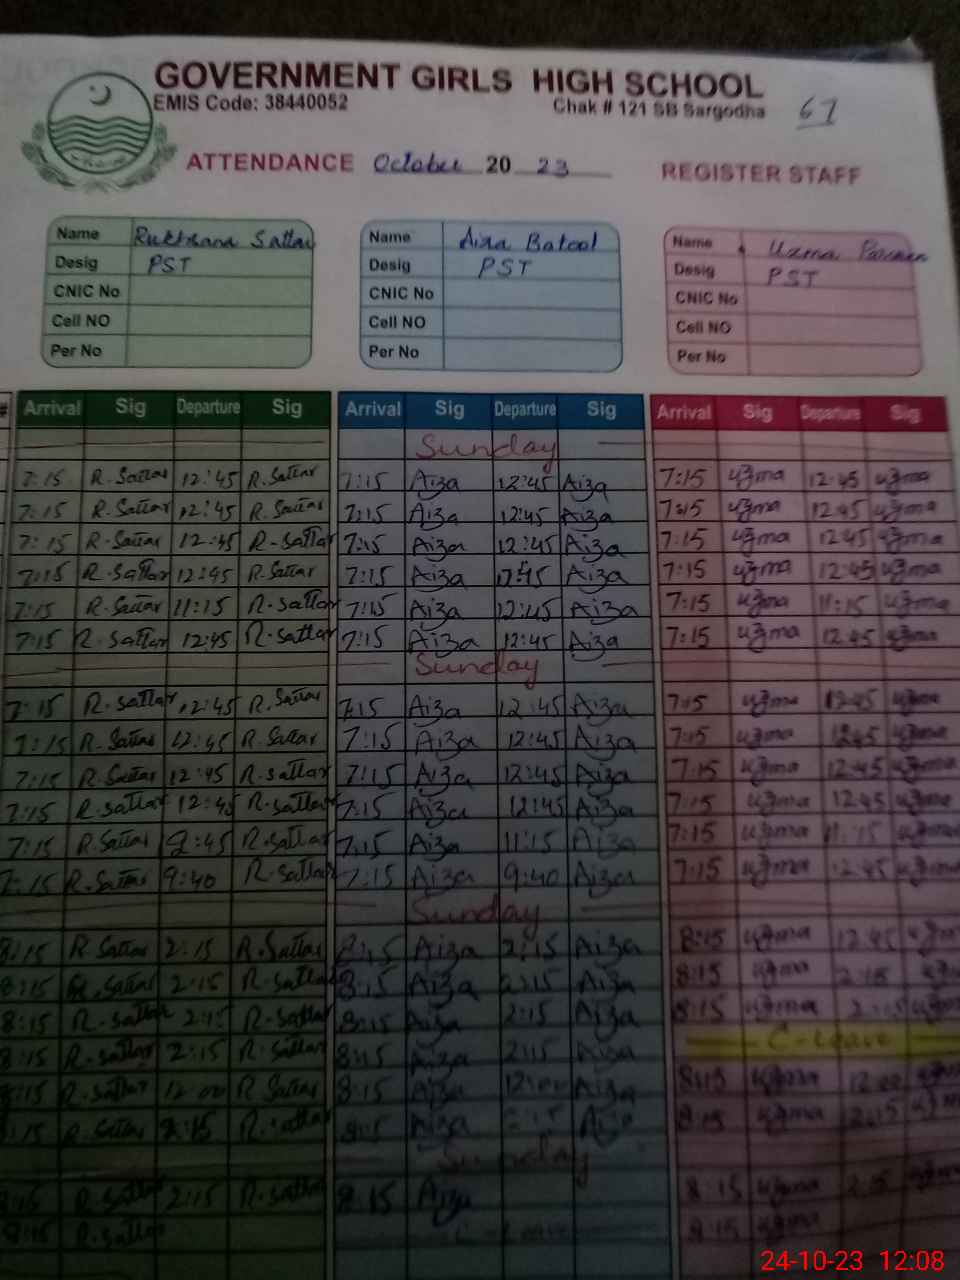 GOVERNMENT GIRLS HIGH SCHOOL
EMIS Code: 38440052 Chak # 121 SB Sargodha 67
ATTENDANCE October 20 23 REGISTER STAFF
Name Rukhsana Sattar Name Aiza Batool Name Uzma
Desig PST Desig PST Desig PST
CNIC No CNIC No CNIC No
Cell NO Cell NO Cell NO
Per No Per No Per No
# Arrival Sig Departure Sig Arrival Sig Departure Sig Arrival Sig Departure Sig
Sunday
7:15 R.Sattar 12:45 R.Sattar 7:15 Aiza 12:45 Aiza 7:15 uzma 12:45 uzma
7:15 R.Sattar 12:45 R.Sattar 7:15 Aiza 12:45 Aiza 7:15 uzma 12:45 uzma
7:15 R-Sattar 12:45 R-Sattar 7:15 Aiza 12:45 Aiza 7:15 uzma 12:45 uzma
7:15 R.Sattar 12:45 R.Sattar 7:15 Aiza 12:45 Aiza 7:15 uzma 12:45 uzma
7:15 R.Sattar 11:15 R.sattar 7:15 Aiza 12:45 Aiza 7:15 uzma 11:15 uzma
7:15 R.sattar 12:45 R.sattar 7:15 Aiza 12:45 Aiza 7:15 uzma 12:45 uzma
Sunday
7:15 R.sattar 12:45 R.Sattar 7:15 Aiza 12:45 Aiza 7:15 uzma 12:45 uzma
7:15 R.Sattar 12:45 R.Sattar 7:15 Aiza 12:45 Aiza 7:15 uzma 12:45 uzma
7:15 R.Sattar 12:45 R.sattar 7:15 Aiza 12:45 Aiza 7:15 uzma 12:45 uzma
7:15 R.sattar 12:45 R.sattar 7:15 Aiza 12:45 Aiza 7:15 uzma 12:45 uzma
7:15 R.Sattar :45 R.sattar 7:15 Aiza 11:15 Aiza 7:15 uzma 11:15 uzma
7:15 R.Sattar 9:40 R.sattar 7:15 Aiza 9:40 Aiza 7:15 uzma 12:45 uzma
Sunday
8:15 R.Sattar 2:15 R.Sattar 8:15 Aiza 2:15 Aiza 8:15 uzma 12:45 uzma
8:15 R.sattar 2:15 R.sattar 8:15 Aiza 2:15 Aiza 8:15 uzma 2:15 uzma
8:15 R.sattar 2:15 R.sattar 8:15 Aiza 2:15 Aiza 8:15 uzma 2:15 uzma
8:15 R.sattar 2:15 R.sattar 8:15 Aiza 2:15 Aiza C-Leave
8:15 R.sattar 12:00 R.Sattar 8:15 Aiza 12:00 Aiza 8:15 uzma 12:00 uzma
8:15 R.Sattar 2:15 R.sattar 8:15 Aiza 2:15 Aiza 8:15 uzma 2:15 uzma
Sunday
8:15 R.sattar 2:15 R.sattar 8:15 Aiza 8:15 uzma 2:15 uzma
8:15 R.sattar C-Leave 8:15 uzma
24-10-23 12:08